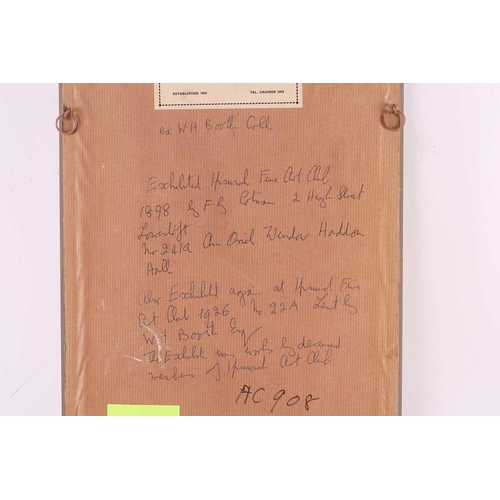 ESTABLISHED TEL. CROMER
ex W H Booth Coll
Exhibited Ipswich Fine Art Club
1898 by F G Cotman 2 High Street
Lowestoft
No 241a An Oriel Window Haddon
Hall
Also Exhibited again at Ipswich Fine
Art Club 1926 No 22A Lent by
W.H. Booth Esq
The Exhibits were works by deceased
members of Ipswich Art Club
AC 908